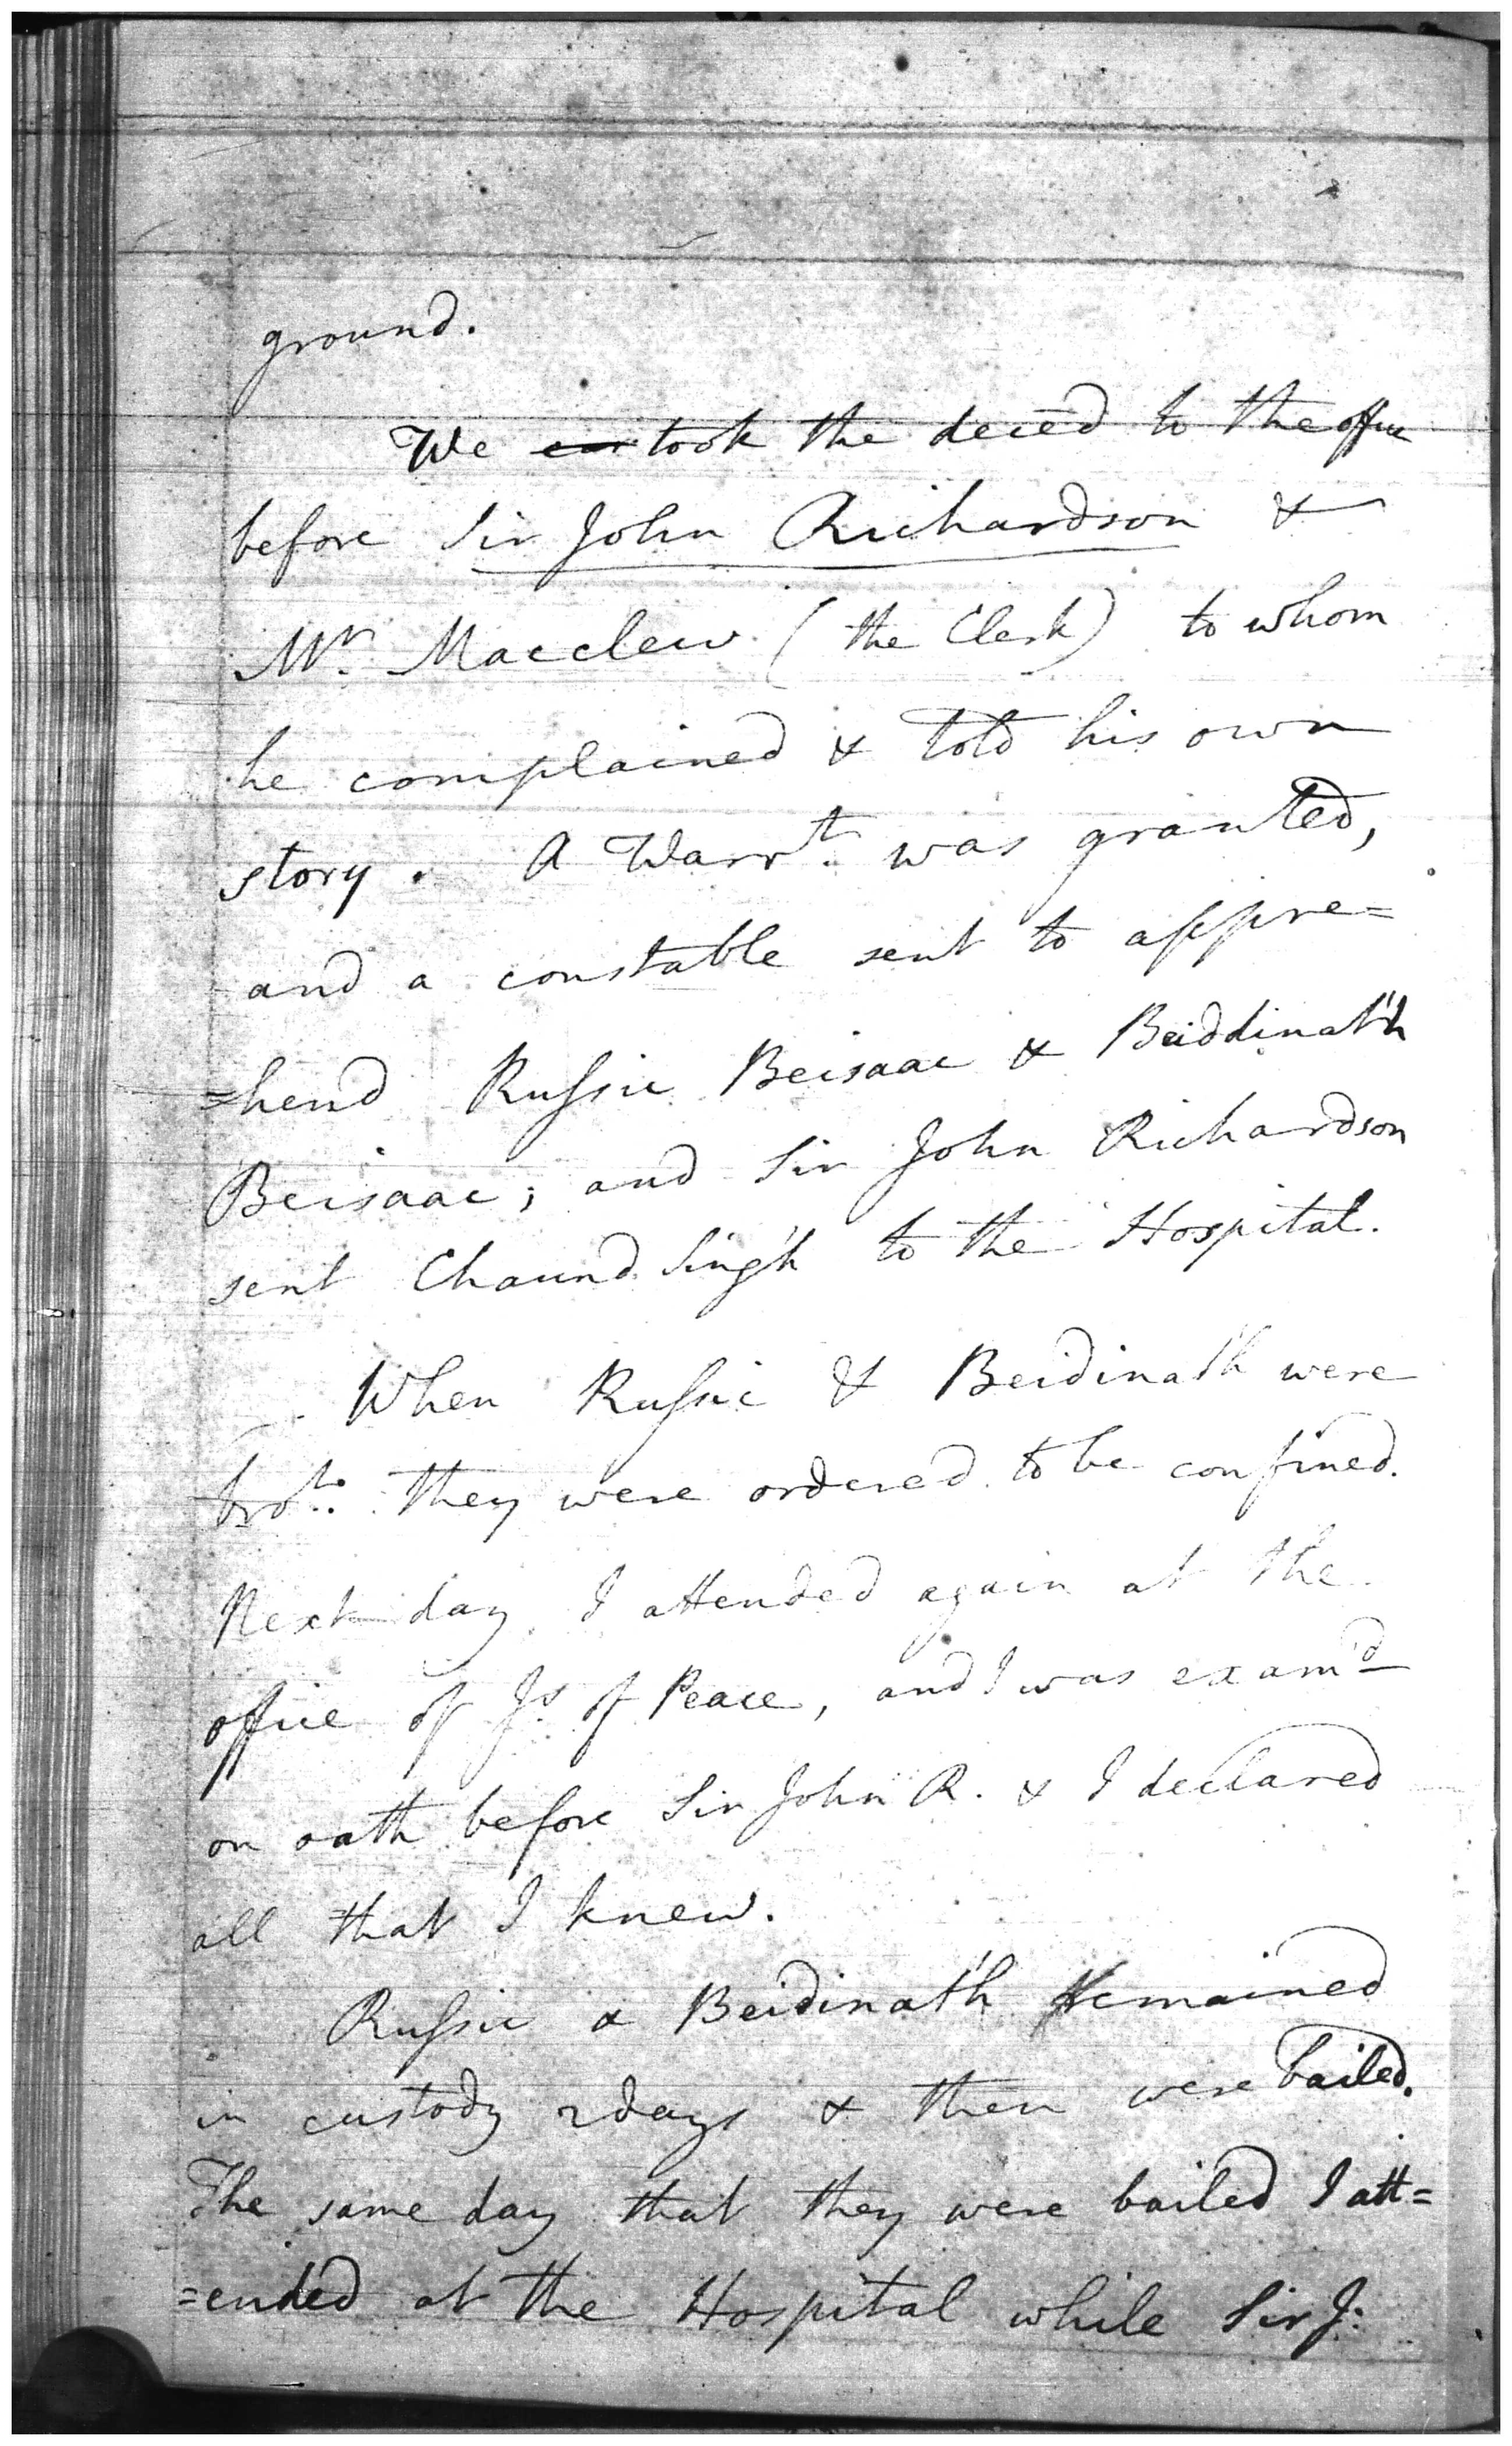 ground.
We took the deced to the office
before Sir John Richardson &
Mr. Macclew (the Clerk) to whom
he complained & told his own
story. A Warrt. was granted,
and a constable sent to appre=
=hend Russic Beisaac & Beiddinat'h
Beisaac; and Sir John Richardson
sent Chaund Sing'h to the Hospital.
When Russic & Beidinat'h were
brot. they were ordered to be confined.
Next day I attended again at the
office of Js. of Peace, and I was exam'd
on oath before Sir John R. & I declared
all that I knew.
Russic & Beidinat'h Remained
in custody 2 days & then were bailed.
The same day that they were bailed I att=
=ended at the Hospital while Sir J: